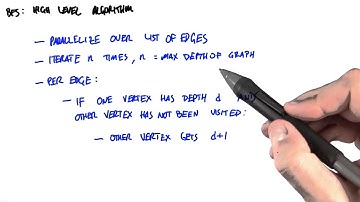 BFS: HIGH LEVEL ALGORITHM
- PARALLELIZE OVER LIST OF EDGES
- ITERATE N TIMES, N = MAX DEPTH OF GRAPH
- PER EDGE:
- IF ONE VERTEX HAS DEPTH d AND
OTHER VERTEX HAS NOT BEEN VISITED:
- OTHER VERTEX GETS d+1